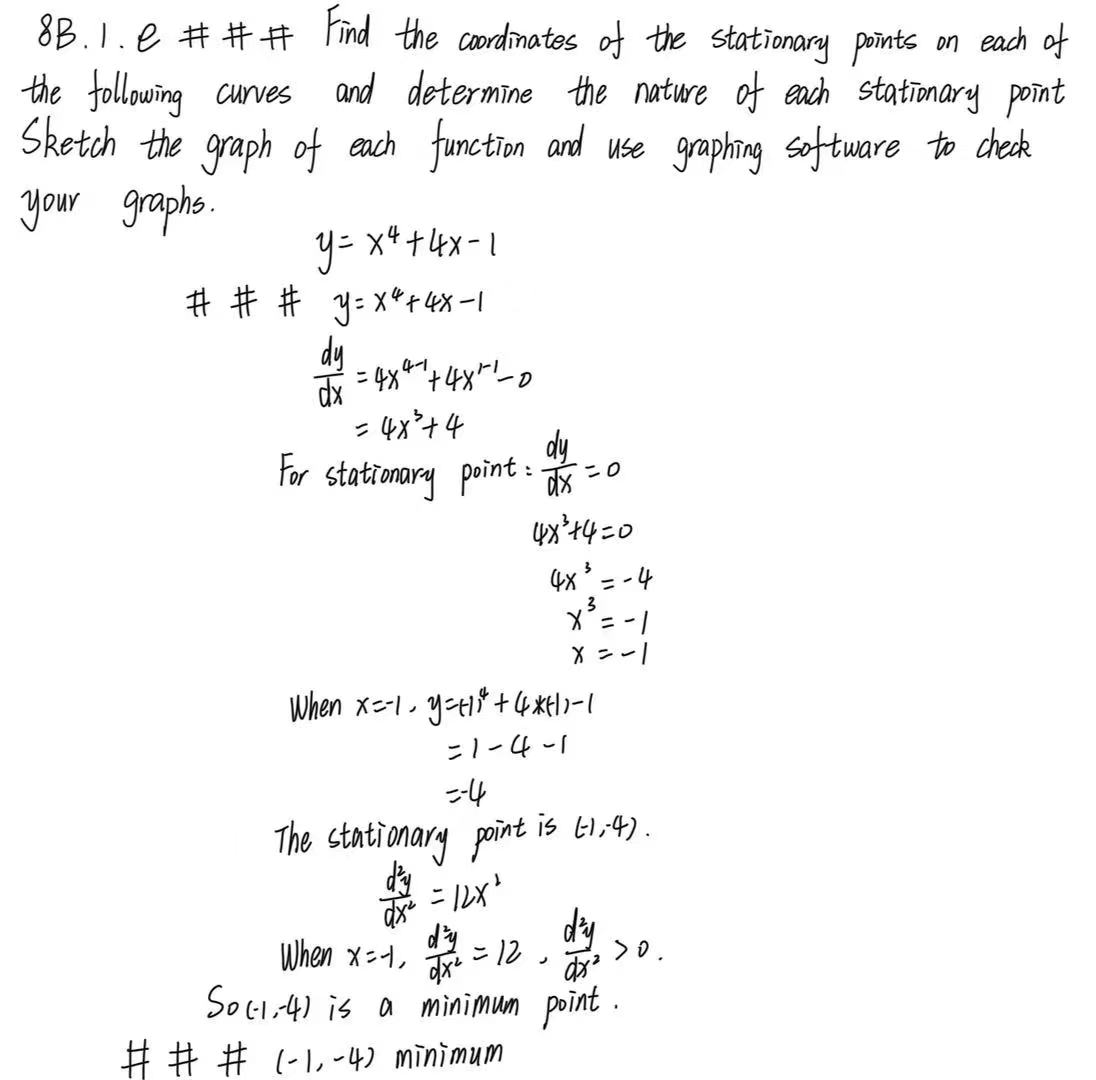 8B.1.e # # # Find the coordinates of the stationary points on each of
the following curves and determine the nature of each stationary point
Sketch the graph of each function and use graphing software to check
your graphs.
y = x⁴ + 4x - 1
# # # y = x⁴ + 4x - 1
dy/dx = 4x⁴⁻¹ + 4x¹⁻¹ - 0
= 4x³ + 4
For stationary point: dy/dx = 0
4x³ + 4 = 0
4x³ = -4
x³ = -1
x = -1
When x=-1, y=(-1)⁴ + 4*(-1) - 1
= 1 - 4 - 1
= -4
The stationary point is (-1,-4).
d²y/dx² = 12x²
When x=-1, d²y/dx² = 12, d²y/dx² > 0.
So (-1,-4) is a minimum point.
# # # (-1, -4) minimum